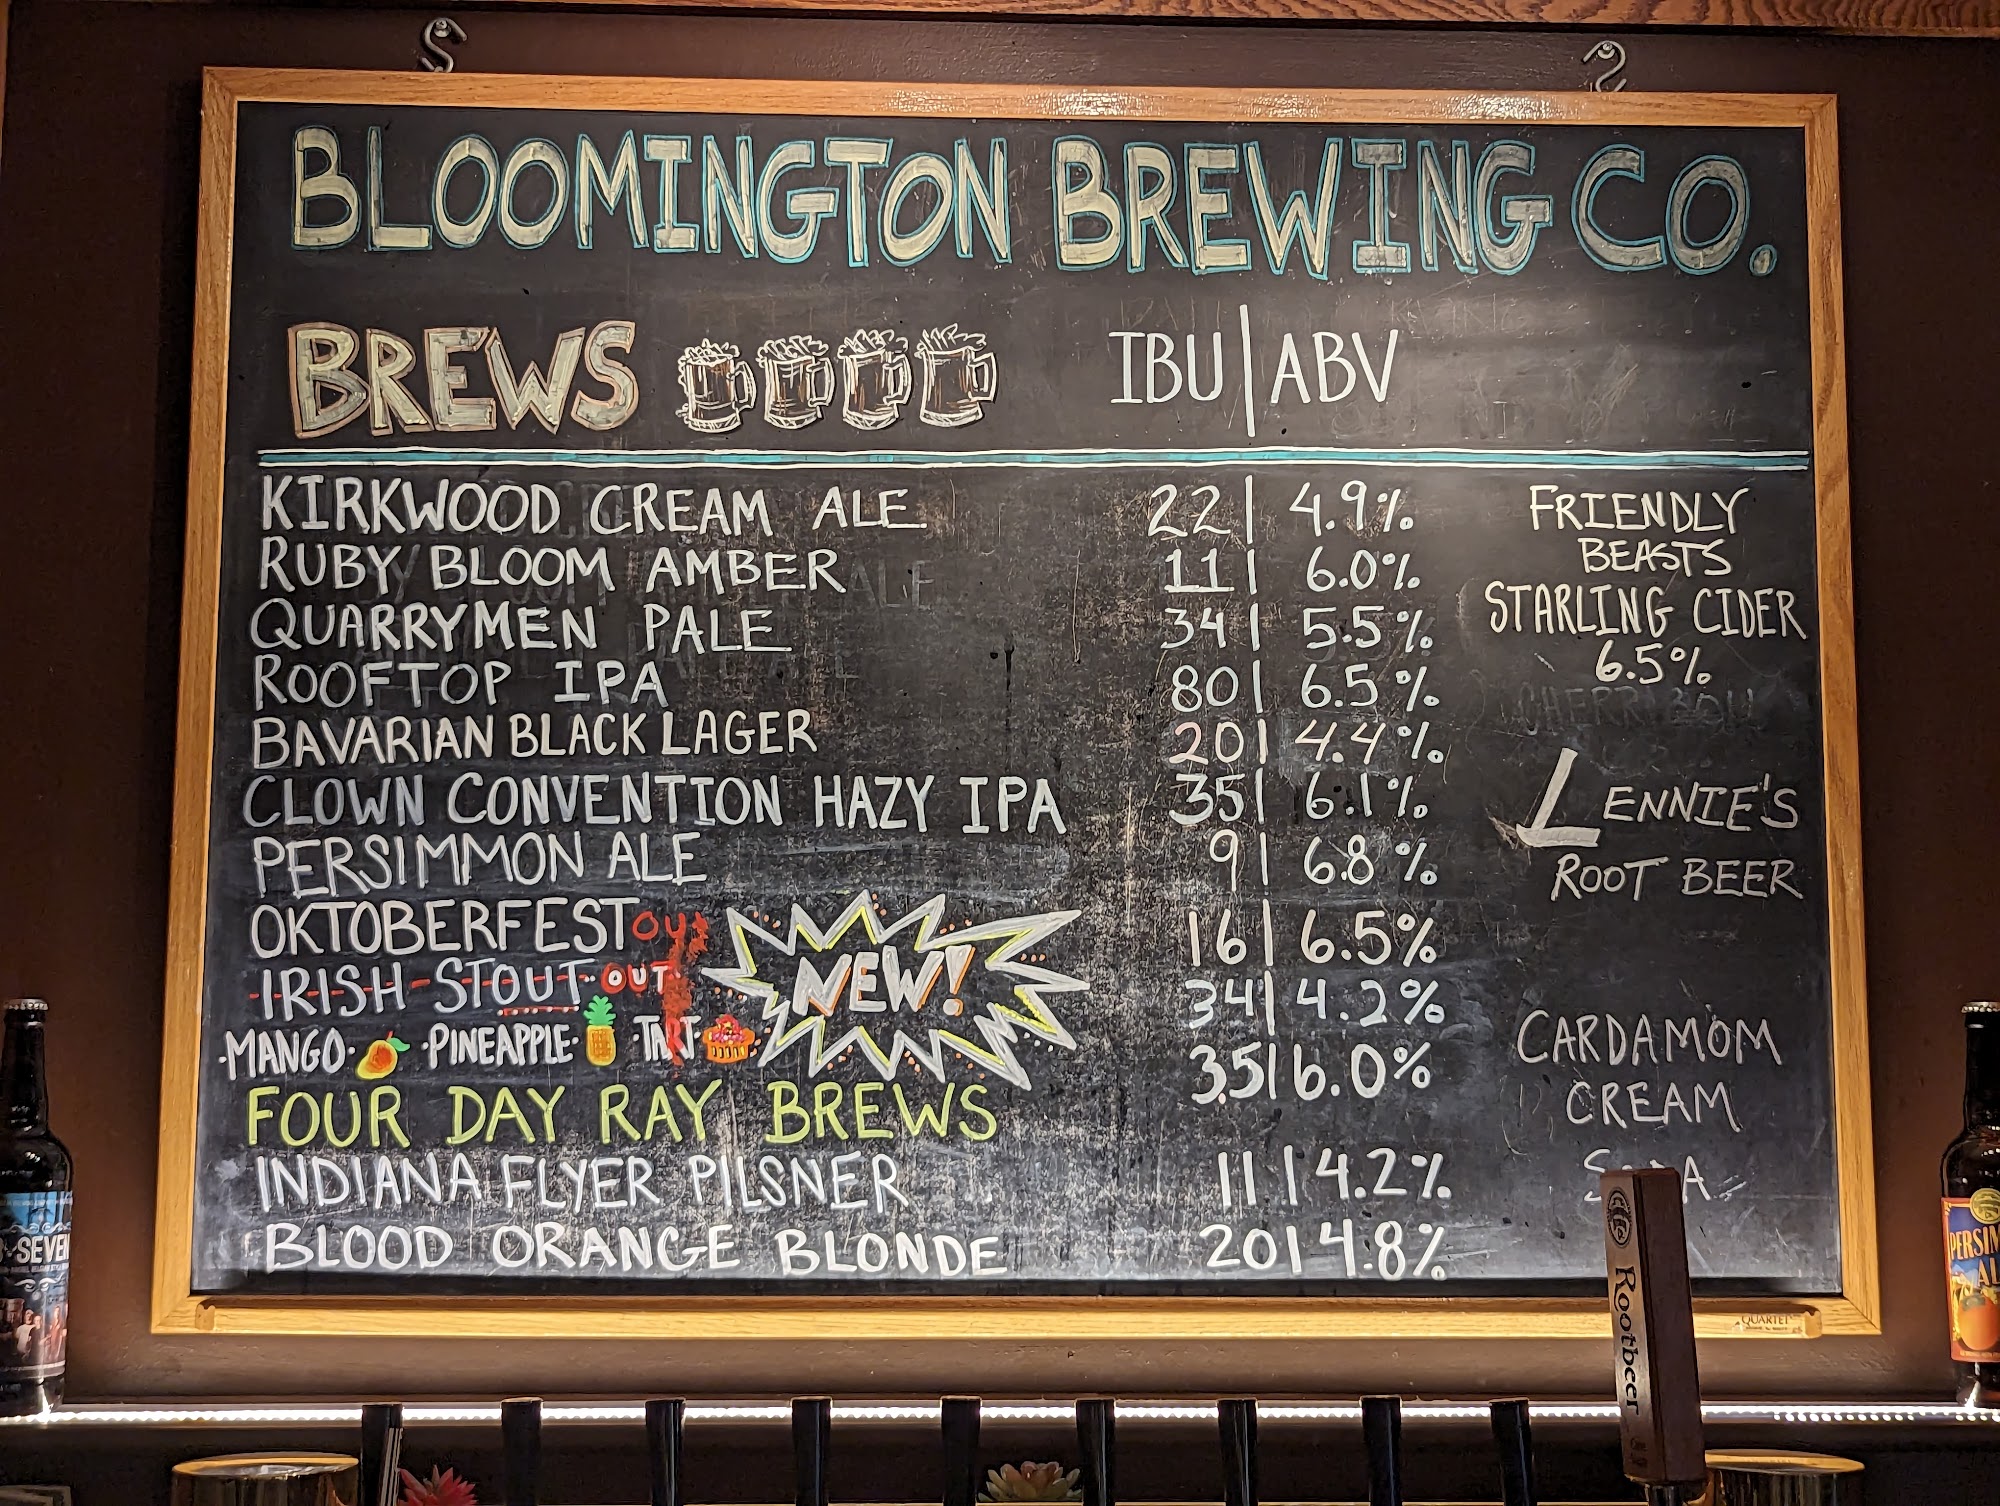 BLOOMINGTON BREWING CO.
BREWS IBU | ABV
KIRKWOOD CREAM ALE 22 | 4.9%
RUBY BLOOM AMBER 11 | 6.0%
QUARRYMEN PALE 34 | 5.5%
ROOFTOP IPA 80 | 6.5%
BAVARIAN BLACK LAGER 20 | 4.4%
CLOWN CONVENTION HAZY IPA 35 | 6.1%
PERSIMMON ALE 9 | 6.8%
OKTOBERFEST OUT 16 | 6.5%
IRISH STOUT OUT 34 | 4.2%
·MANGO· ·PINEAPPLE· ·TART· 3.5 | 6.0%
NEW!
FOUR DAY RAY BREWS
INDIANA FLYER PILSNER 11 | 4.2%
BLOOD ORANGE BLONDE 20 | 4.8%
FRIENDLY
BEASTS
STARLING CIDER
6.5%
LENNIE'S
ROOT BEER
CARDAMOM
CREAM
QUARTET
Rootbeer
SEVEN
PERSIM
AL